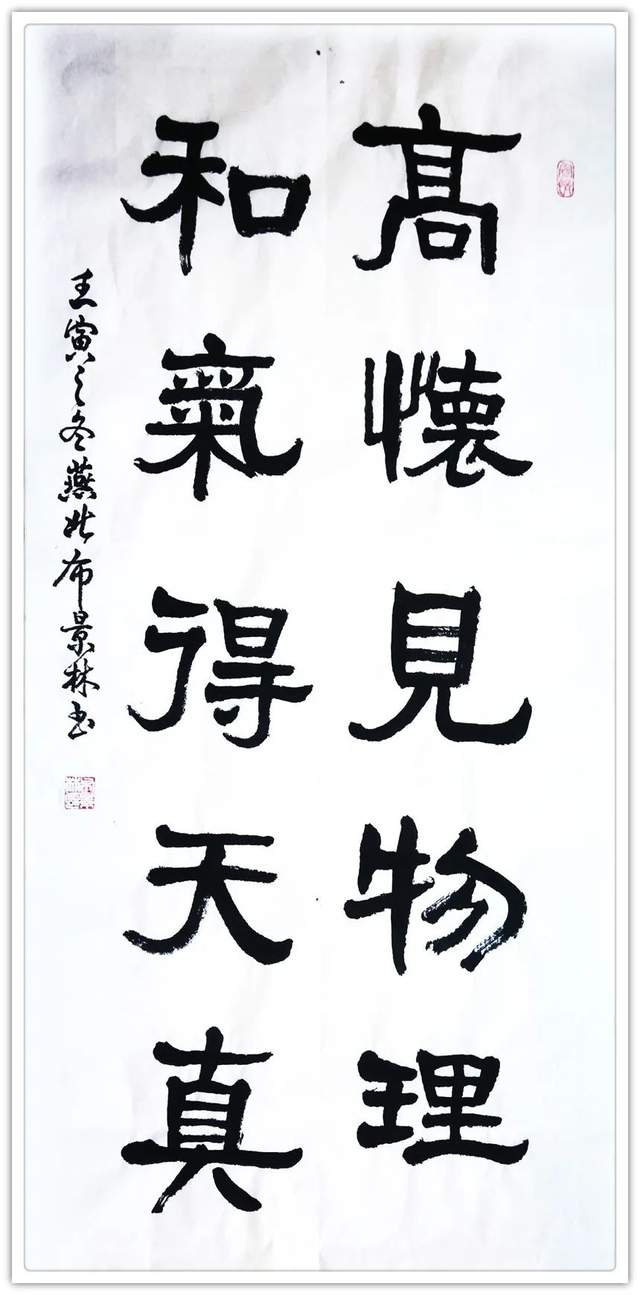 高懷見物理
和氣得天真
壬寅之冬燕北布景林书